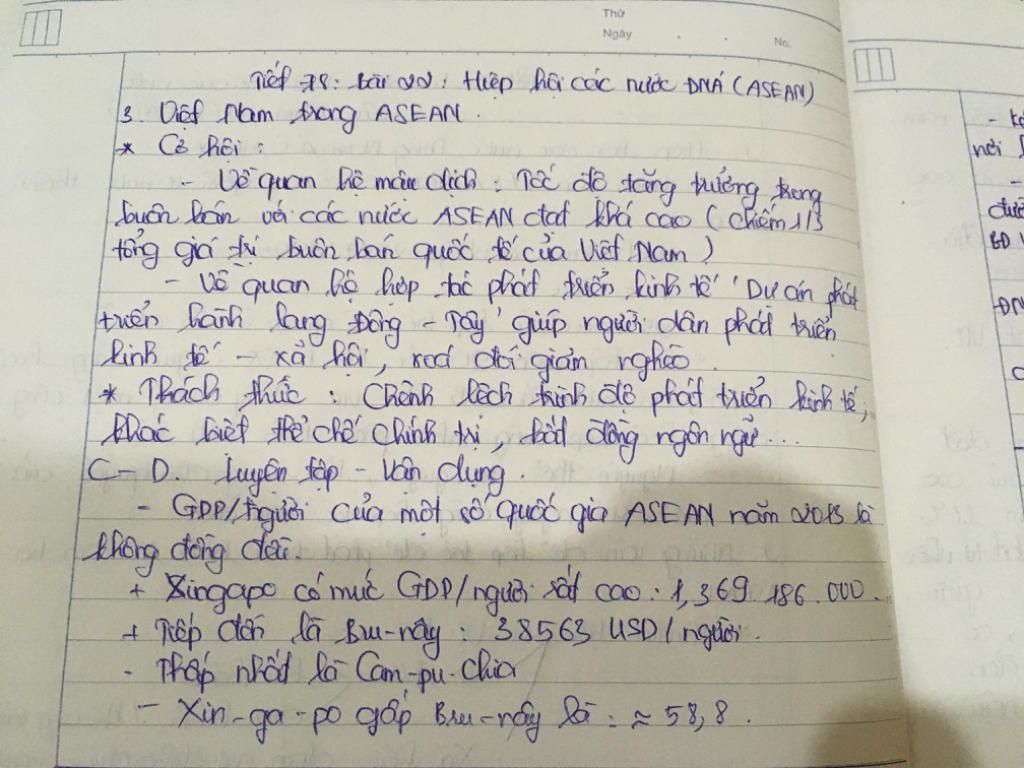 Thứ
Ngày
No.
Tiết 78: Bài 22: Hiệp hội các nước ĐNÁ (ASEAN)
3. Việt Nam trong ASEAN.
* Cơ hội:
- Về quan hệ mâu dịch: Tốc độ tăng trưởng trong
buôn bán với các nước ASEAN đạt khá cao (chiếm 1/3
tổng giá trị buôn bán quốc tế của Việt Nam)
- Về quan hệ hợp tác phát triển kinh tế 'Dự án phát
triển hành lang Đông - Tây' giúp người dân phát triển
kinh tế - xã hội, xoá đói giảm nghèo.
* Thách thức: Chênh lệch trình độ phát triển kinh tế,
khác biệt thể chế chính trị, bất đồng ngôn ngữ...
C D. Luyện tập - Vận dụng.
- GDP/người của một số quốc gia ASEAN năm là
không đồng đều.
+ Xingapo có mức GDP/người rất cao: 1,369.186.000.
+ Tiếp đến là Bru-nây: 38563 USD/người.
- Thấp nhất là Cam-pu-chia
- Xin-ga-po gấp Bru-nây là: ≈ 58,8.
nơi
đươ
ĐN